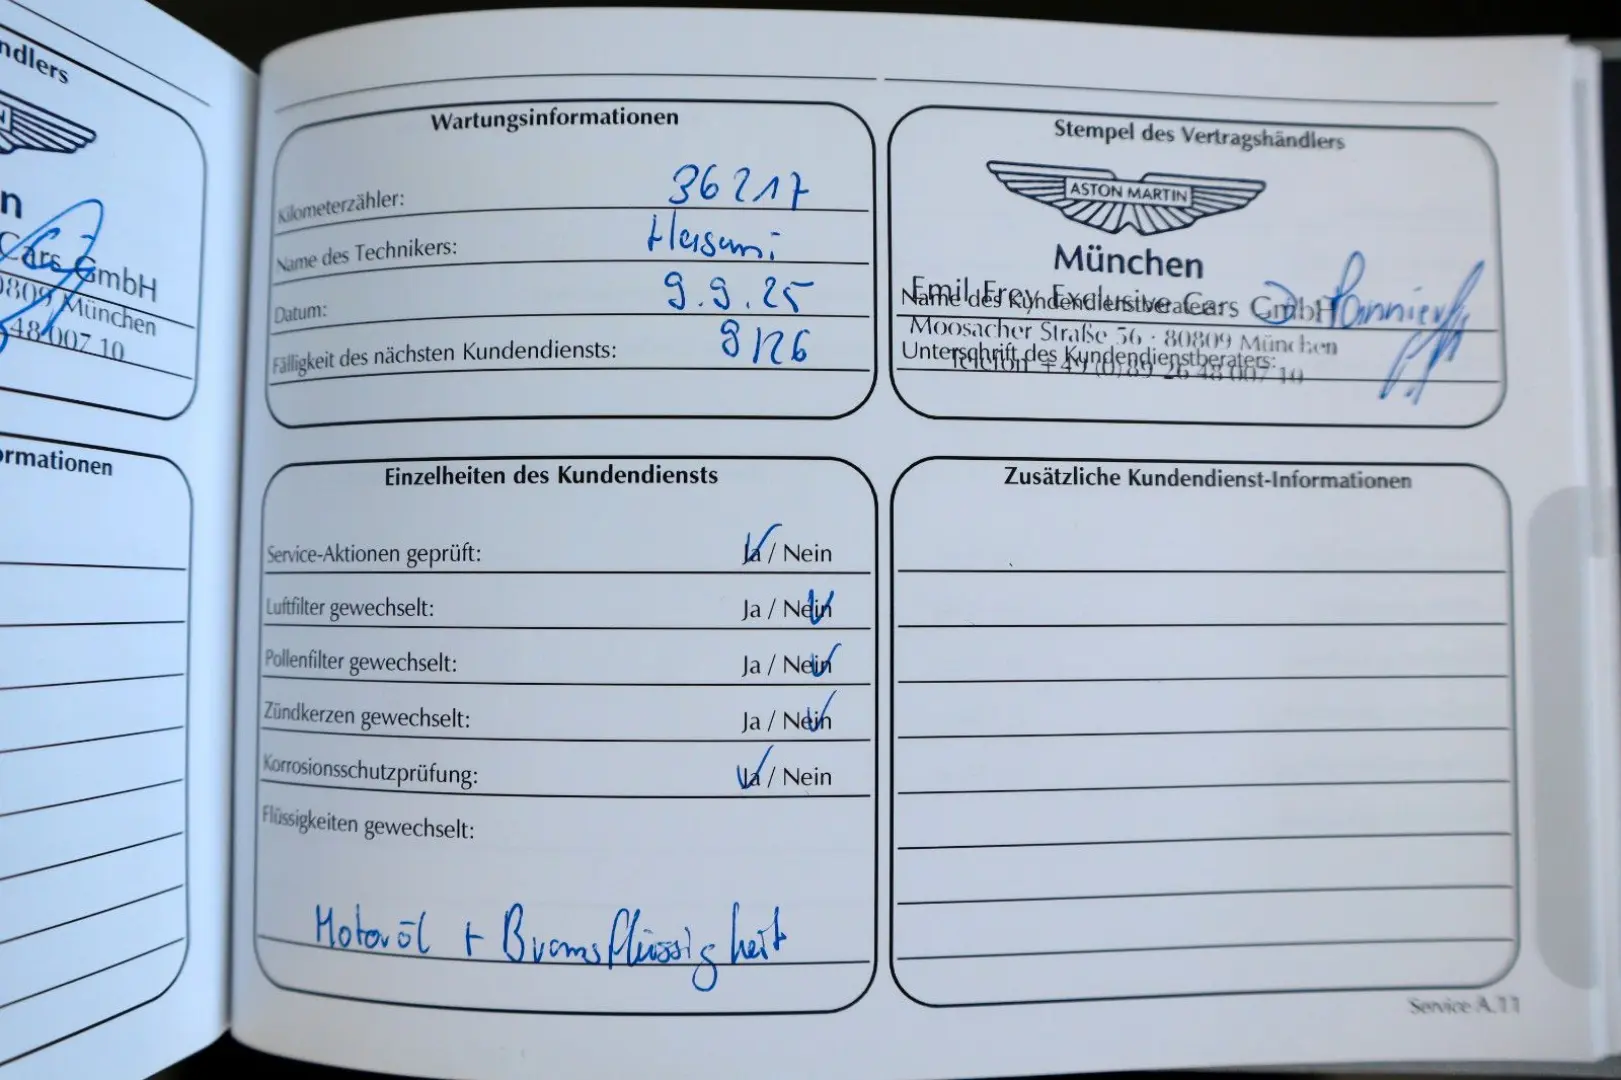 ndlers
n
Cars GmbH
0809 München
48 007 10
ormationen
Wartungsinformationen
Kilometerzähler: 36217
Name des Technikers:
Datum: 9.9.25
Fälligkeit des nächsten Kundendiensts: 9/26
Stempel des Vertragshändlers
ASTON MARTIN
München
Emil Frey Exclusive Cars GmbH
Name des Kundendienstberaters:
Moosacher Straße 56 · 80809 München
Unterschrift des Kundendienstberaters:
Telefon +49 (0)89 26 48 007 10
Einzelheiten des Kundendiensts
Service-Aktionen geprüft: Ja / Nein
Luftfilter gewechselt: Ja / Nein
Pollenfilter gewechselt: Ja / Nein
Zündkerzen gewechselt: Ja / Nein
Korrosionsschutzprüfung: Ja / Nein
Flüssigkeiten gewechselt:
Motoröl + Bremsflüssigkeit
Zusätzliche Kundendienst-Informationen
Service A.11